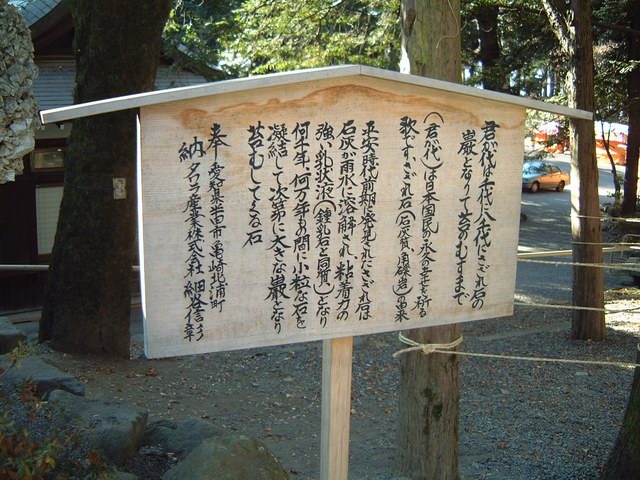 君が代は千代に八千代にさざれ石の
巌となりて苔のむすまで
(君が代)は日本国民の永久の幸せを祈る
歌ですさざれ石(石灰質角礫岩)の由来
平安時代前期に発見されたさざれ石は
石灰が雨水に溶解され、粘着力の
強い乳状液(鍾乳石と同質)となり
何千年、何万年もの間に小粒な石を
凝結して次第に大きな巌となり
苔むしてくる石
奉納
愛知県半田市亀崎北浦町
ナゴヤ産業株式会社